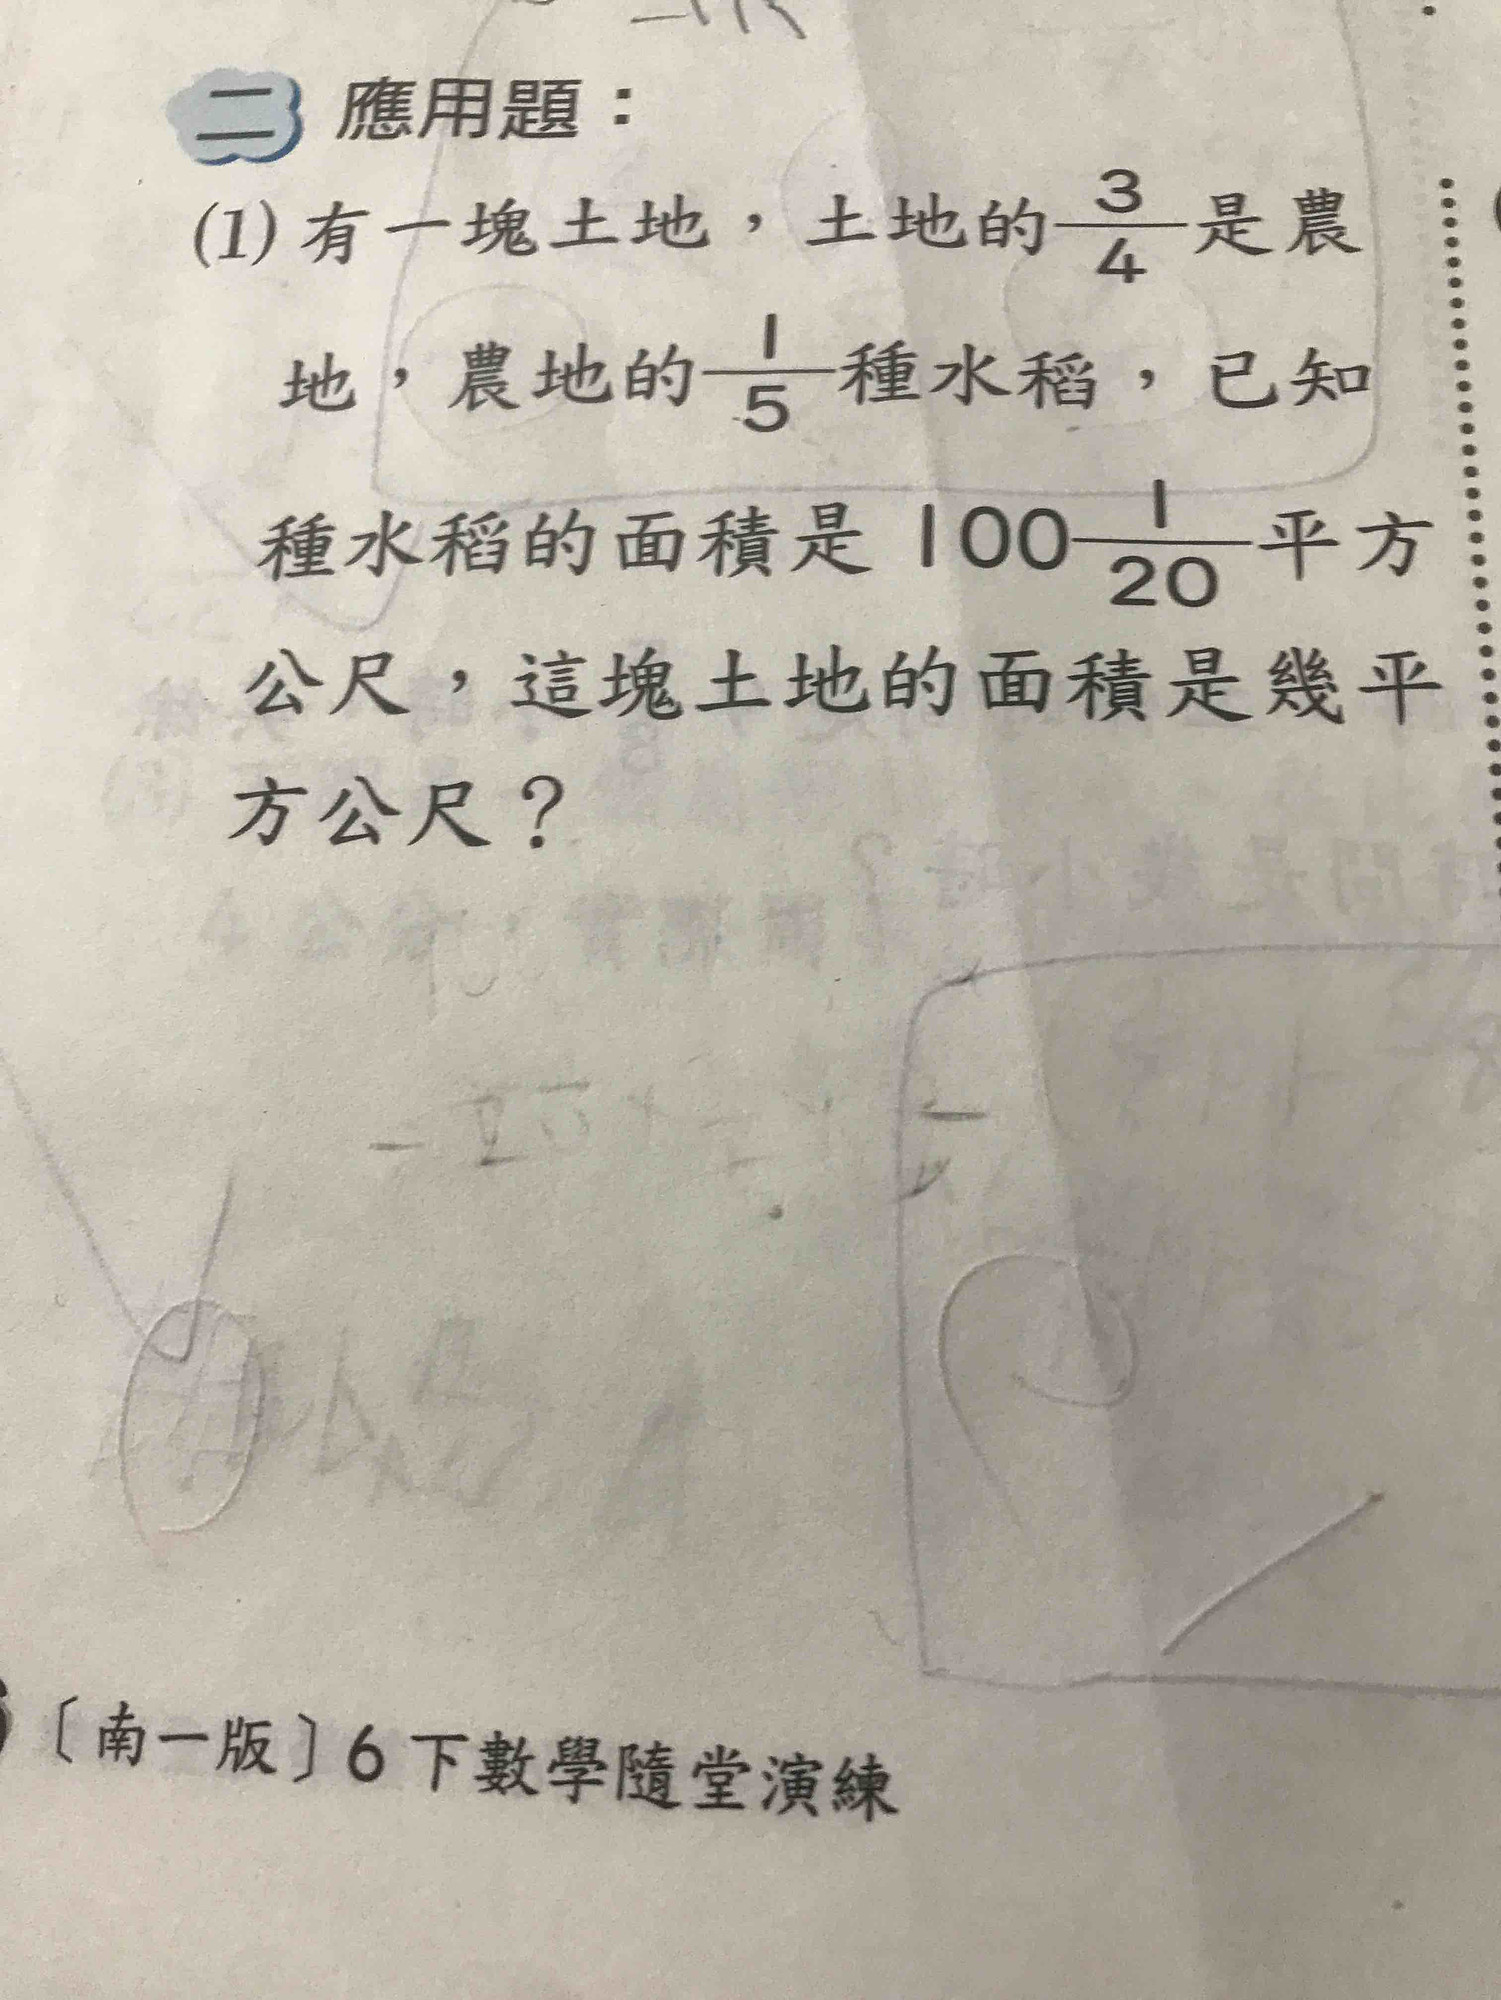 二 應用題：
(1) 有一塊土地，土地的 3/4 是農
地，農地的 1/5 種水稻，已知
種水稻的面積是 100 1/20 平方
公尺，這塊土地的面積是幾平
方公尺？
〔南一版〕6下數學隨堂演練